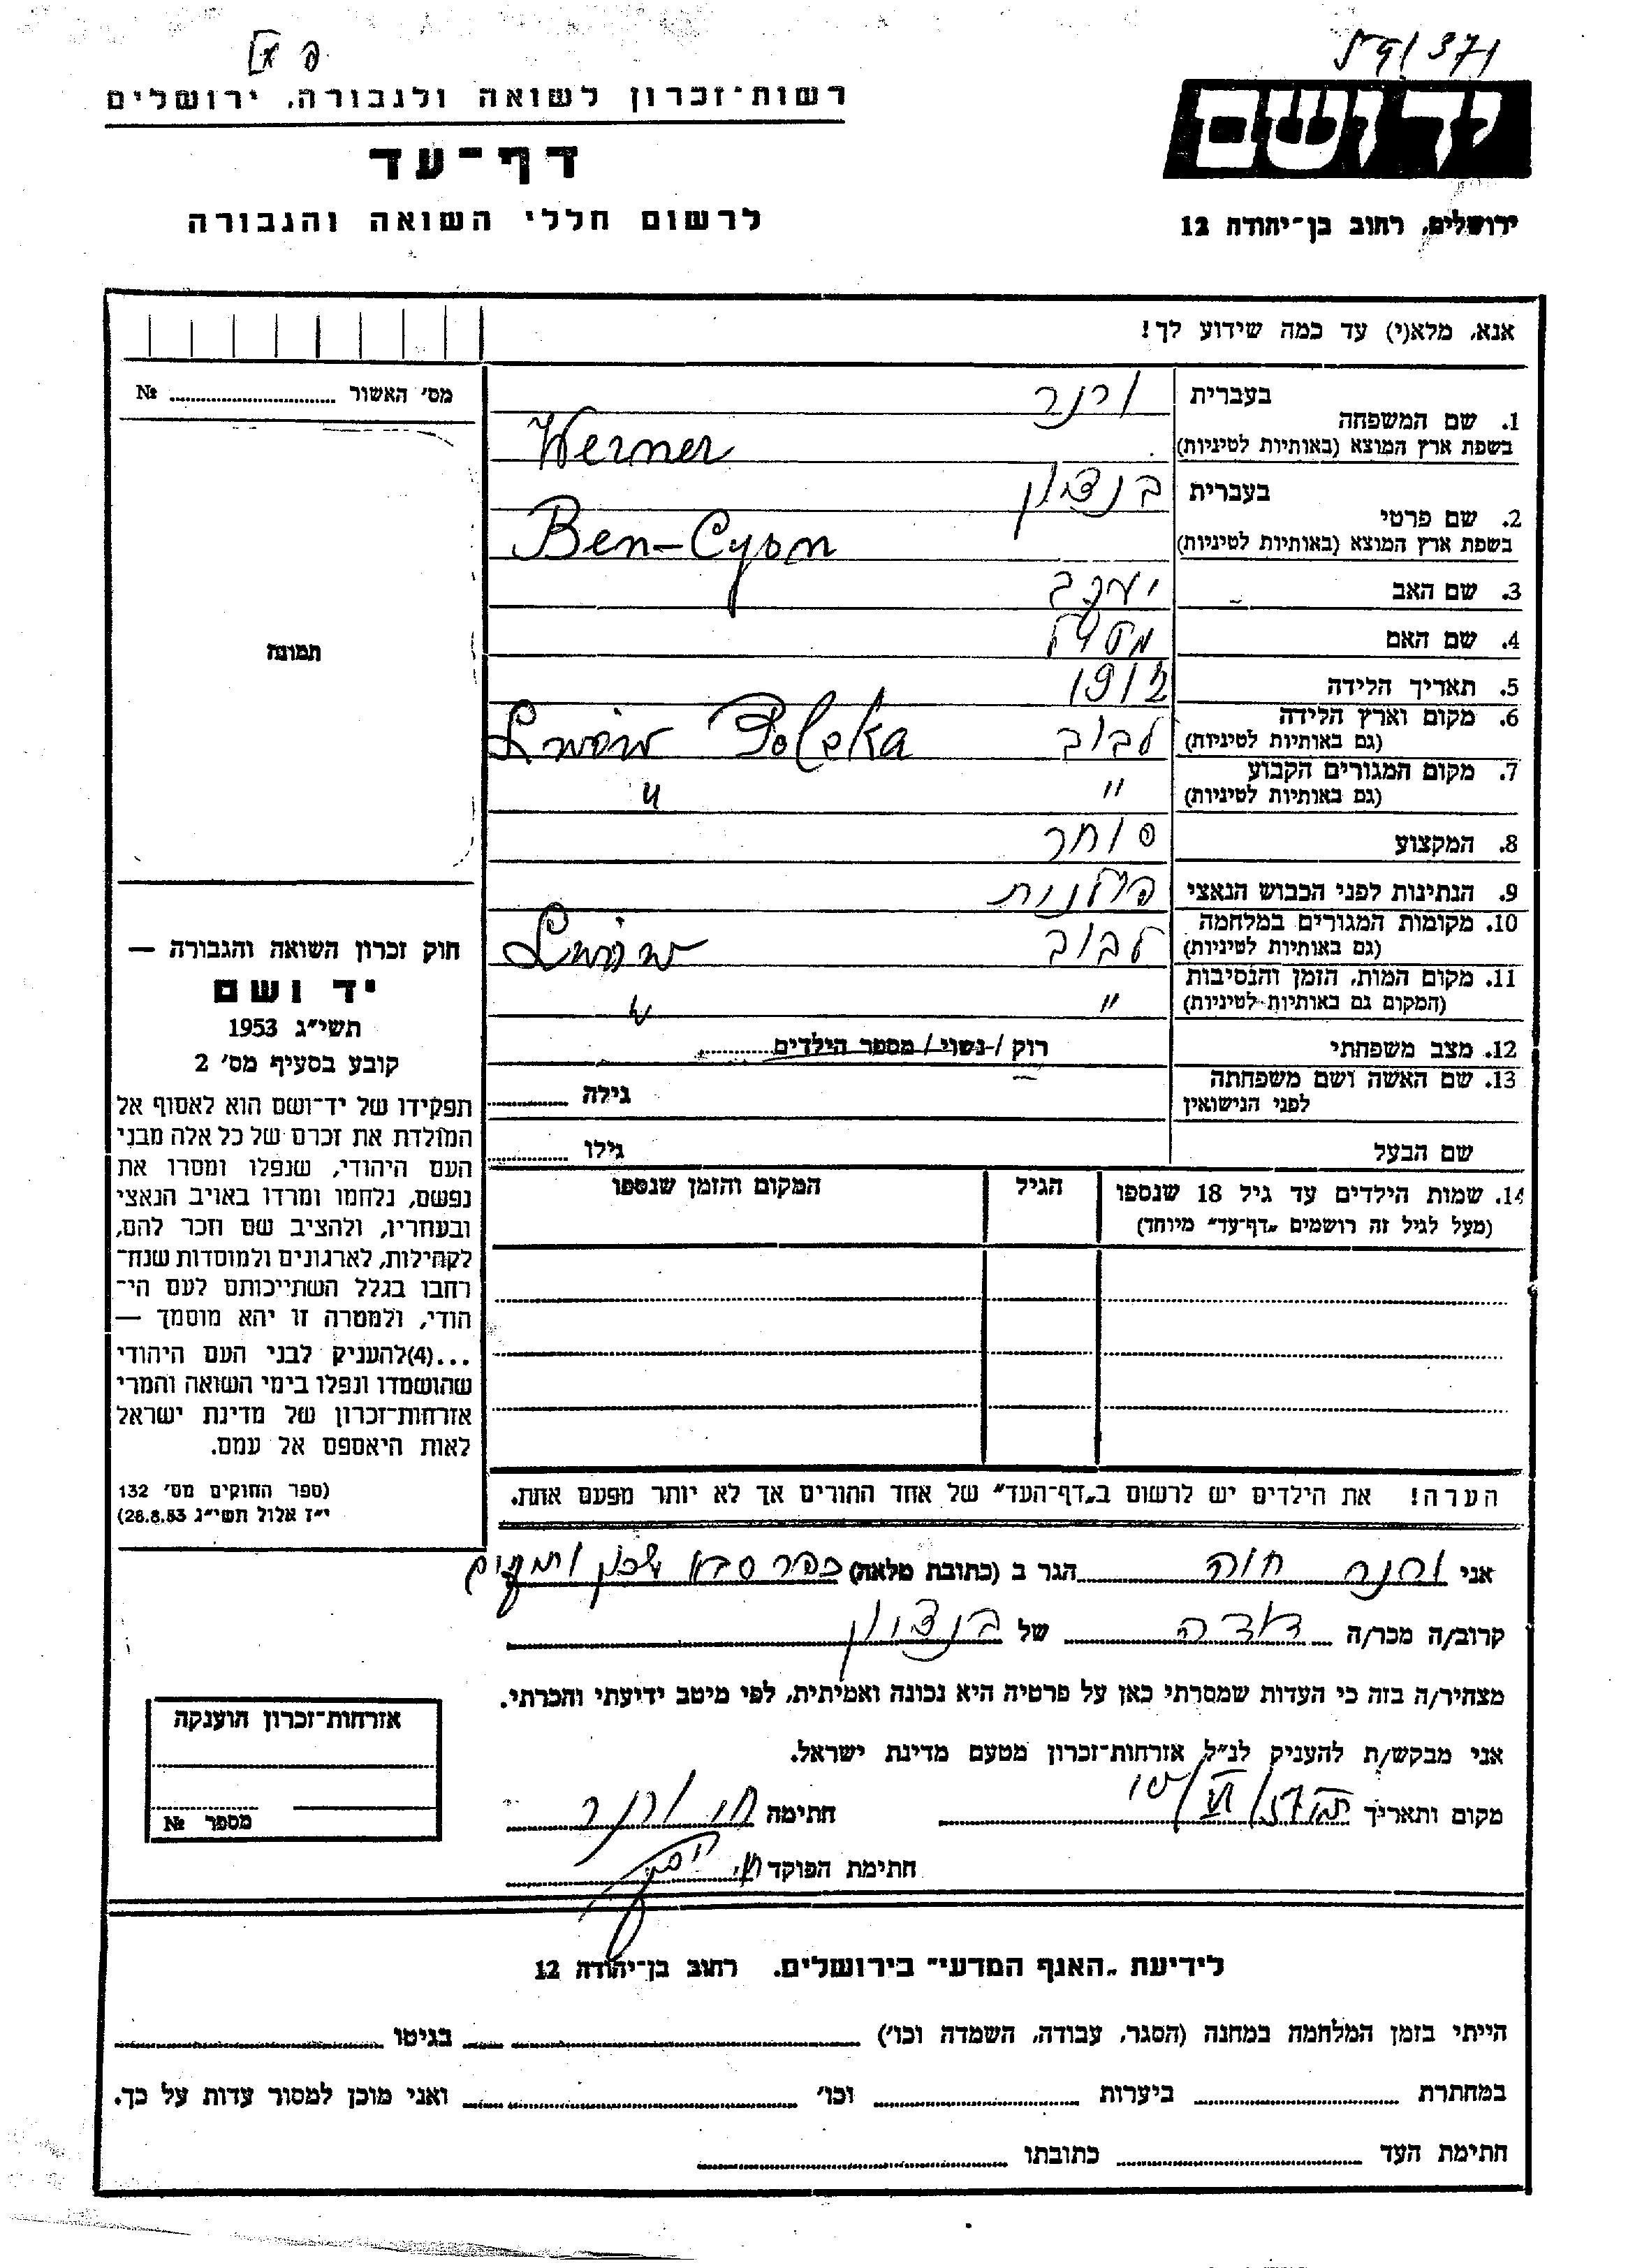 רשות־זכרון לשואה ולגבורה, ירושלים
דף־עד
לרשום חללי השואה והגבורה
ידושם
ירושלים, רחוב בן־יהודה 12
אנא, מלא(י) עד כמה שידוע לך!
מס׳ האשור № 
תמונה
1. שם המשפחה
בעברית ורנר
בשפת ארץ המוצא (באותיות לטיניות) Werner
2. שם פרטי
בעברית בנציון
בשפת ארץ המוצא (באותיות לטיניות) Ben-Cyon
3. שם האב יעקב
4. שם האם
5. תאריך הלידה
6. מקום וארץ הלידה לבוב Lwów Polska
(גם באותיות לטיניות)
7. מקום המגורים הקבוע " "
(גם באותיות לטיניות)
8. המקצוע סוחר
9. הנתינות לפני הכבוש הנאצי פולנית
10. מקומות המגורים במלחמה לבוב Lwów
(גם באותיות לטיניות)
11. מקום המות, הזמן והנסיבות " "
(המקום גם באותיות לטיניות)
12. מצב משפחתי רוק / נשוי / מספר הילדים
13. שם האשה ושם משפחתה גילה
לפני הנישואין
שם הבעל גילו
14. שמות הילדים עד גיל 18 שנספו הגיל המקום והזמן שנספו
(מעל לגיל זה רושמים „דף־עד״ מיוחד)
הערה! את הילדים יש לרשום ב„דף־העד״ של אחד ההורים אך לא יותר מפעם אחת.
חוק זכרון השואה והגבורה —
יד ושם
תשי״ג 1953
קובע בסעיף מס׳ 2
תפקידו של יד־ושם הוא לאסוף אל
המולדת את זכרם של כל אלה מבני
העם היהודי, שנפלו ומסרו את
נפשם, נלחמו ומרדו באויב הנאצי
ובעוזריו, ולהציב שם וזכר להם,
לקהילות, לארגונים ולמוסדות שנח־
רבו בגלל השתייכותם לעם הי־
הודי, ולמטרה זו יהא מוסמך —
...(4)להעניק לבני העם היהודי
שהושמדו ונפלו בימי השואה והמרי
אזרחות־זכרון של מדינת ישראל
לאות היאספם אל עמם.
(ספר החוקים מס׳ 132
י״ז אלול תשי״ג 28.8.53)
אני ורנר חוה הגר ב (כתובת מלאה) כפר סבא שכון
קרוב/ה מכר/ה דודה של בנציון
מצהיר/ה בזה כי העדות שמסרתי כאן על פרטיה היא נכונה ואמיתית, לפי מיטב ידיעתי והכרתי.
אני מבקש/ת להעניק לנ״ל אזרחות־זכרון מטעם מדינת ישראל.
מקום ותאריך חתימה ורנר
חתימת הפוקד
אזרחות־זכרון הוענקה
מספר №
לידיעת „האגף המדעי״ בירושלים. רחוב בן־יהודה 12
הייתי בזמן המלחמה במחנה (הסגר, עבודה, השמדה וכו׳) בגיטו
במחתרת ביערות וכו׳ ואני מוכן למסור עדות על כך.
חתימת העד כתובתו